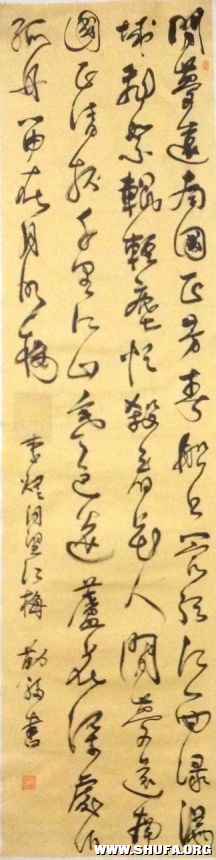 閒夢遠南國正芳春船上管弦江面綠滿
城飛絮輥輕塵忙殺看花人閒夢遠南
國正清秋千里江山寒色遠蘆花深處泊
孤舟笛在月明樓
李煜詞望江梅 書
WWW.SHUFA.ORG